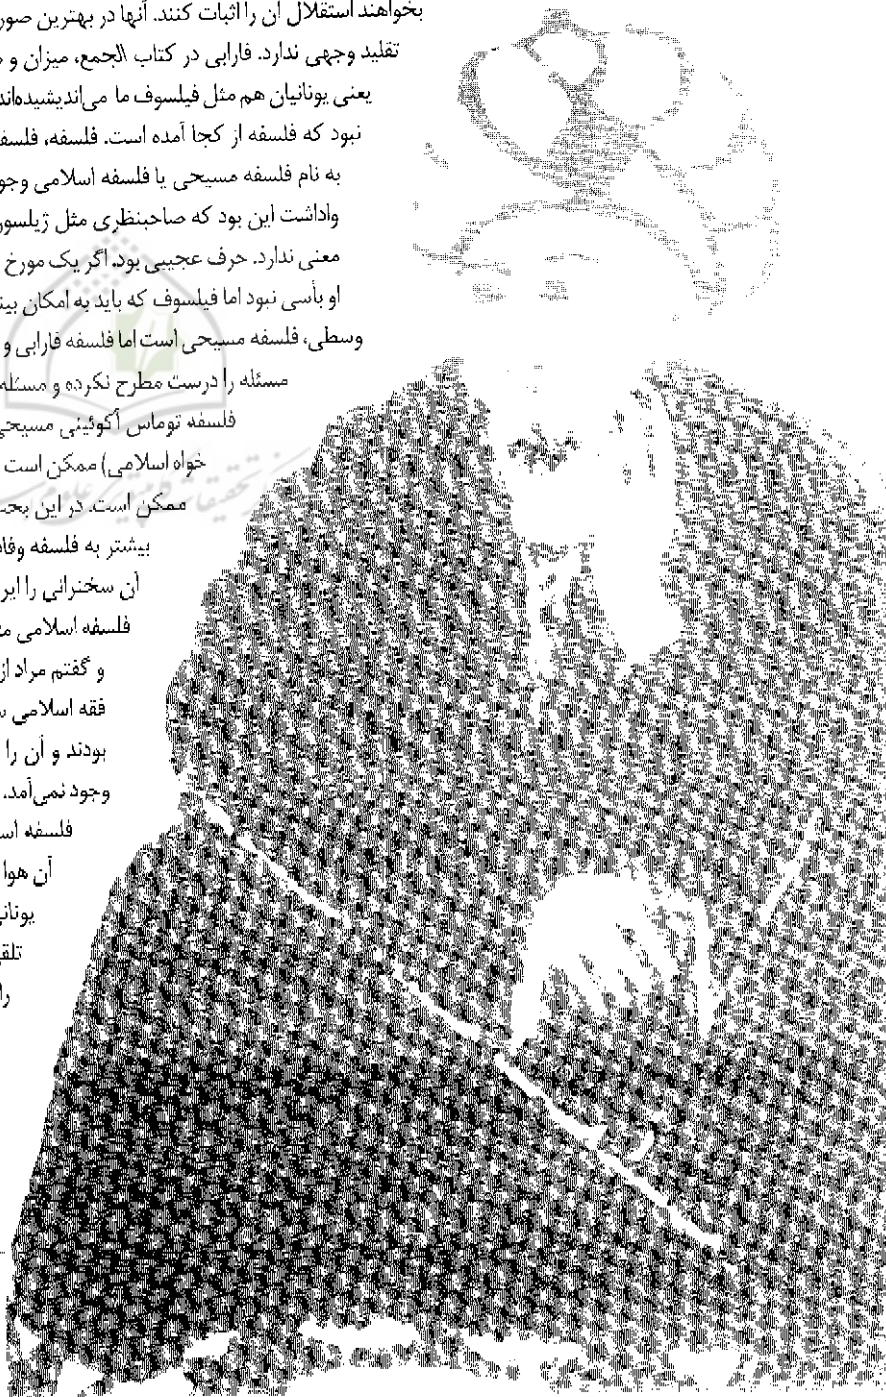 بخواهند استقلال آن را اثبات کنند. آنها در بهترین صور
تقلید وجهی ندارد. فارابی در کتاب الجمع، میزان و
یعنی یونانیان هم مثل فیلسوف ما می‌اندیشیده‌اند
نبود که فلسفه از کجا آمده است. فلسفه، فلسف
به نام فلسفه مسیحی یا فلسفه اسلامی وجو
واداشت این بود که صاحبنظری مثل ژیلسور
معنی ندارد. حرف عجیبی بود. اگر یک مورخ
او بأسی نبود اما فیلسوف که باید به امکان بین
وسطی، فلسفه مسیحی است اما فلسفه فارابی و
مسئله را درست مطرح نکرده و مسئله
فلسفه توماس آکوئینی مسیحی
خواه اسلامی) ممکن است
ممکن است. در این بحد
بیشتر به فلسفه وفاد
آن سخنرانی را ایر
فلسفه اسلامی مت
و گفتم مراد از
فقه اسلامی س
بودند و آن را
وجود نمی‌آمد.
فلسفه اس
آن هوا
یونانی
تلق
را